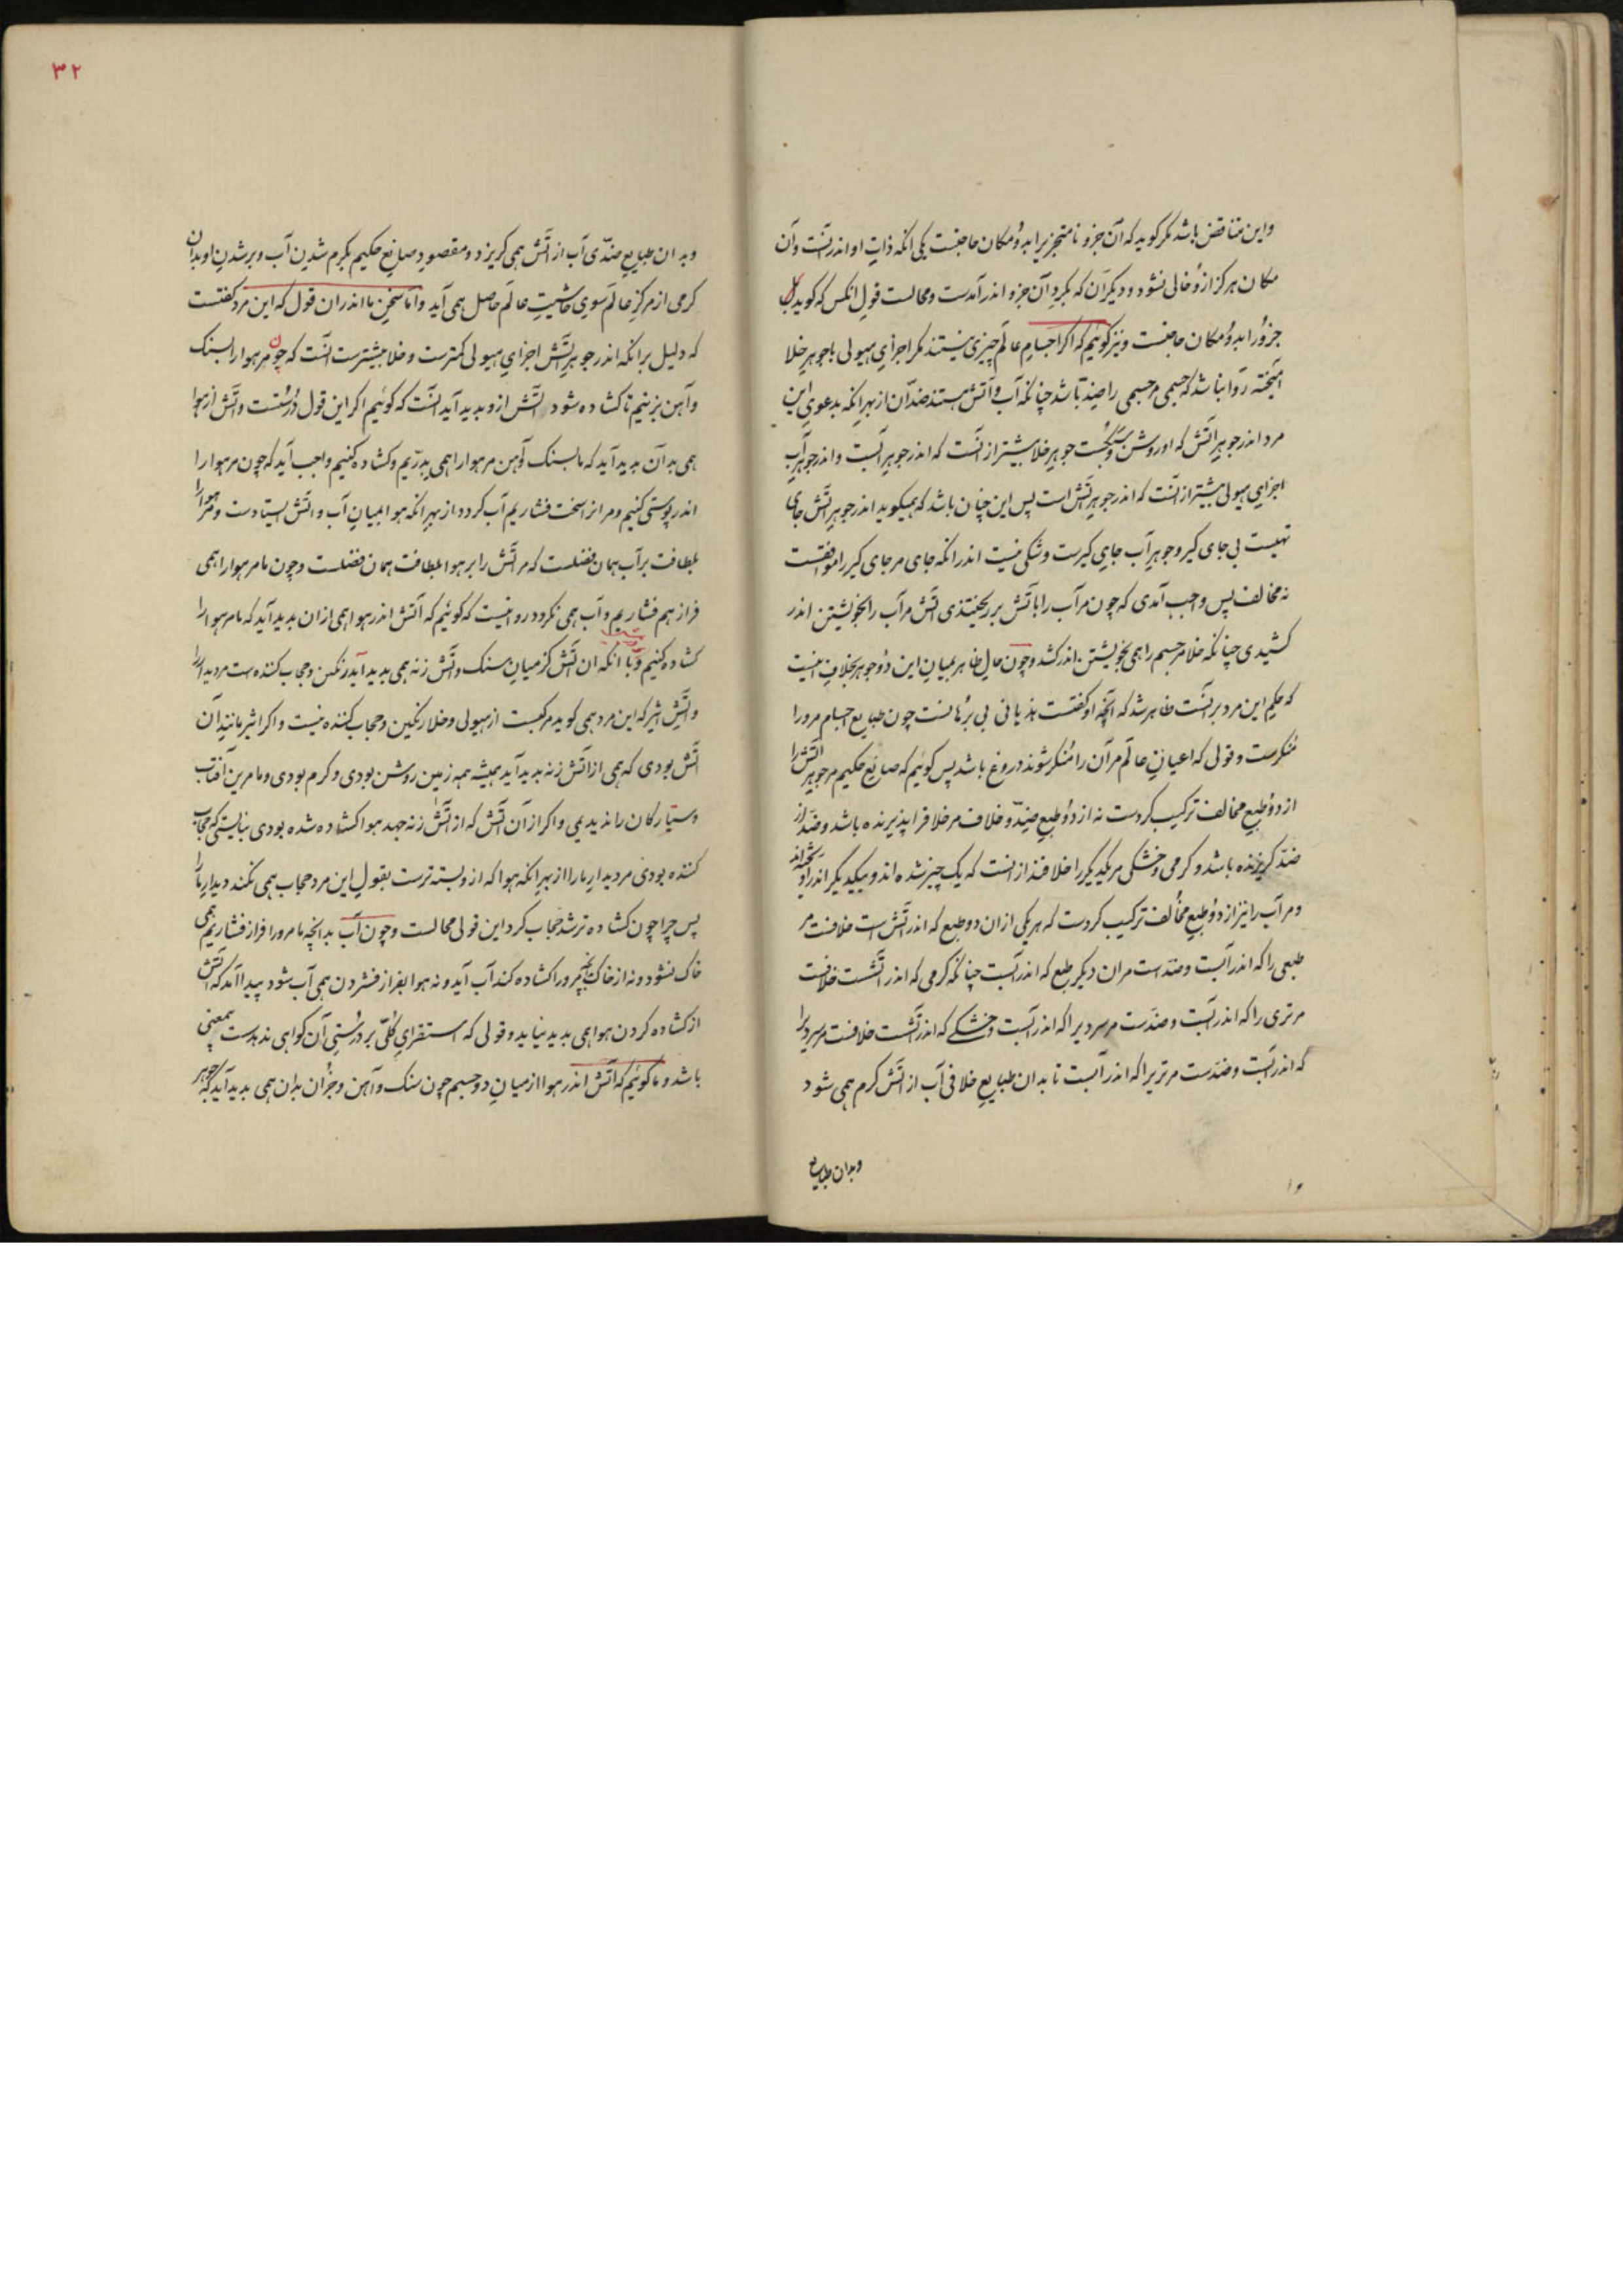 واین متناقض باشد مکر کوید که آن جزو نامتجزیرا بدو مکان حاجتست یکی انکه ذات او اندرآنست وآن
مکان هرکز ازو خالی نشود و دیکر آن که بکرد آن جزو اندر آمدست ومحالست قول انکس که کوید یک
جزورا بدو مکان حاجتست ونیز کوئیم که اکر اجسام عالم چیزی نیستند مکر اجزای هیولی با جوهر خلا
آمیخته روا نباشد که جسمی مر جسمی را ضد باشد چنانکه آب وآتش هستند ضدان از بهر انکه بدعوی این
مرد اندر جوهر آتش که او روشن وسبکست جوهر خلا بیشتر از آنست که اندر جوهر آبست واندر جوهر آب
اجزای هیولی بیشتر از آنست که اندر جوهر آتش است پس این چنان باشد که همیکوید اندر جوهر آتش جای
تهیست بی جای کیر وجوهر آب جای کیرست وشکی نیست اندر انکه جای مر جای کیر را موافقست
نه مخالف پس واجب آمدی که چون مر آب را باتش بر ریختندی آتش مر آب را بخویشتن اندر
کشیدی چنانکه خلا مر جسم را همی بخویشتن اندر کشد وچون حال ظاهر بمیان این دو جوهر بخلاف اینست
که حکم این مرد برآنست ظاهر شد که آنچه او کفتست هذیانی بی برهانست چون طبایع اجسام مرورا
منکرست وقولی که اعیان عالم مر آن را منکر شوند دروغ باشد پس کوئیم که صانع حکیم مر جوهر آتش را
از دو طبع مخالف ترکیب کردست نه از دو طبع ضد وخلاف مر خلاف را پذیرنده باشد وضد از
ضد کریزنده باشد وکرمی وخشکی مر یکدیکر را خلافند از آنست که یک چیز شده اند وبیکدیکر اندر آویخته اند
ومر آب را نیز از دو طبع مخالف ترکیب کردست که هر یکی ازان دو طبع که اندر آتش است خلافست مر
طبعی را که اندر آبست وضدست مران دیکر طبع که اندر آبست چنانکه کرمی که اندر آتشست خلافست
مر تری را که اندر آبست وضدست مر سردیرا که اندر آبست وخشکی که اندر آتشست خلافست مر سردیرا
که اندر آبست وضدست مر تریرا که اندر آبست تا بدان طبایع خلافی آب از آتش کرم همی شود
وبدان طبایع
۳۲
وبدان طبایع ضدی آب از آتش همی کریزد ومقصود صانع حکیم بکرم شدن آب وبر شدن او بدان
کرمی از مرکز عالم سوی حاشیت عالم حاصل همی آید واما سخن ما اندران قول که این مرد کفتست
که دلیل برانکه اندر جوهر آتش اجزای هیولی کمترست وخلا بیشترست آنست که چون مر هوارا بسنک
وآهن بزنیم تا کشاده شود آتش ازو بدید آید آنست که کوئیم اکر این قول درستست وآتش از هوا
همی بدآن بدید آید که ما بسنک وآهن مر هوارا همی بدریم وکشاده کنیم واجب آید که چون مر هوا را
اندر پوستی کنیم ومر انرا سخت بفشاریم آب کردد از بهر انکه هوا بمیان آب واتش ایستاده ست ومر هوارا
بلطافت برآب همان فضلست که مر آتش را بر هوا بلطافت همان فضلست وچون ما مر هوارا همی
فراز هم فشاریم وآب همی نکردد روا نیست که کوئیم که آتش اندر هوا همی ازان بدید آید که ما مر هوارا
کشاده کنیم وبا انکه ان آتش کز میان سنک وآتش زنه همی بدید آید رنکین وحجاب کننده ست مر دیدار را
وآتش اثیر که این مرد همی کوید مرکبست از هیولی وخلا رنکین وحجاب کننده نیست واکر اثیر مانند آن
آتش بودی که همی از اتش زنه بدید آید همیشه همه زمین روشن بودی وکرم بودی وما مرین آفتاب
وستارکان را ندیدیمی واکر از آن آتش که از آتش زنه جهد هوا کشاده شده بودی نبایستی که حجاب
کننده بودی مر دیدار مارا از بهر انکه هوا که ازو بسته ترست بقول این مرد حجاب همی نکند دیدار مارا
پس چرا چون کشاده تر شد حجاب کرد این قولی محالست وچون آب بدانچه ما مرورا فراز فشاریم همی
خاک نشود ونه از خاک بدانچه مرورا کشاده کنند آب آید ونه هوا بفراز فشردن همی آب شود پیدا آمد که آتش
از کشاده کردن هوا همی بدید نیاید وقولی که استقرای کلی بر درستی آن کواهی ندهدست بیمعنی
باشد وما کوئیم که آتش اندر هوا از میان دو جسم چون سنک وآهن وجزان بدان همی بدید آید که جوهر